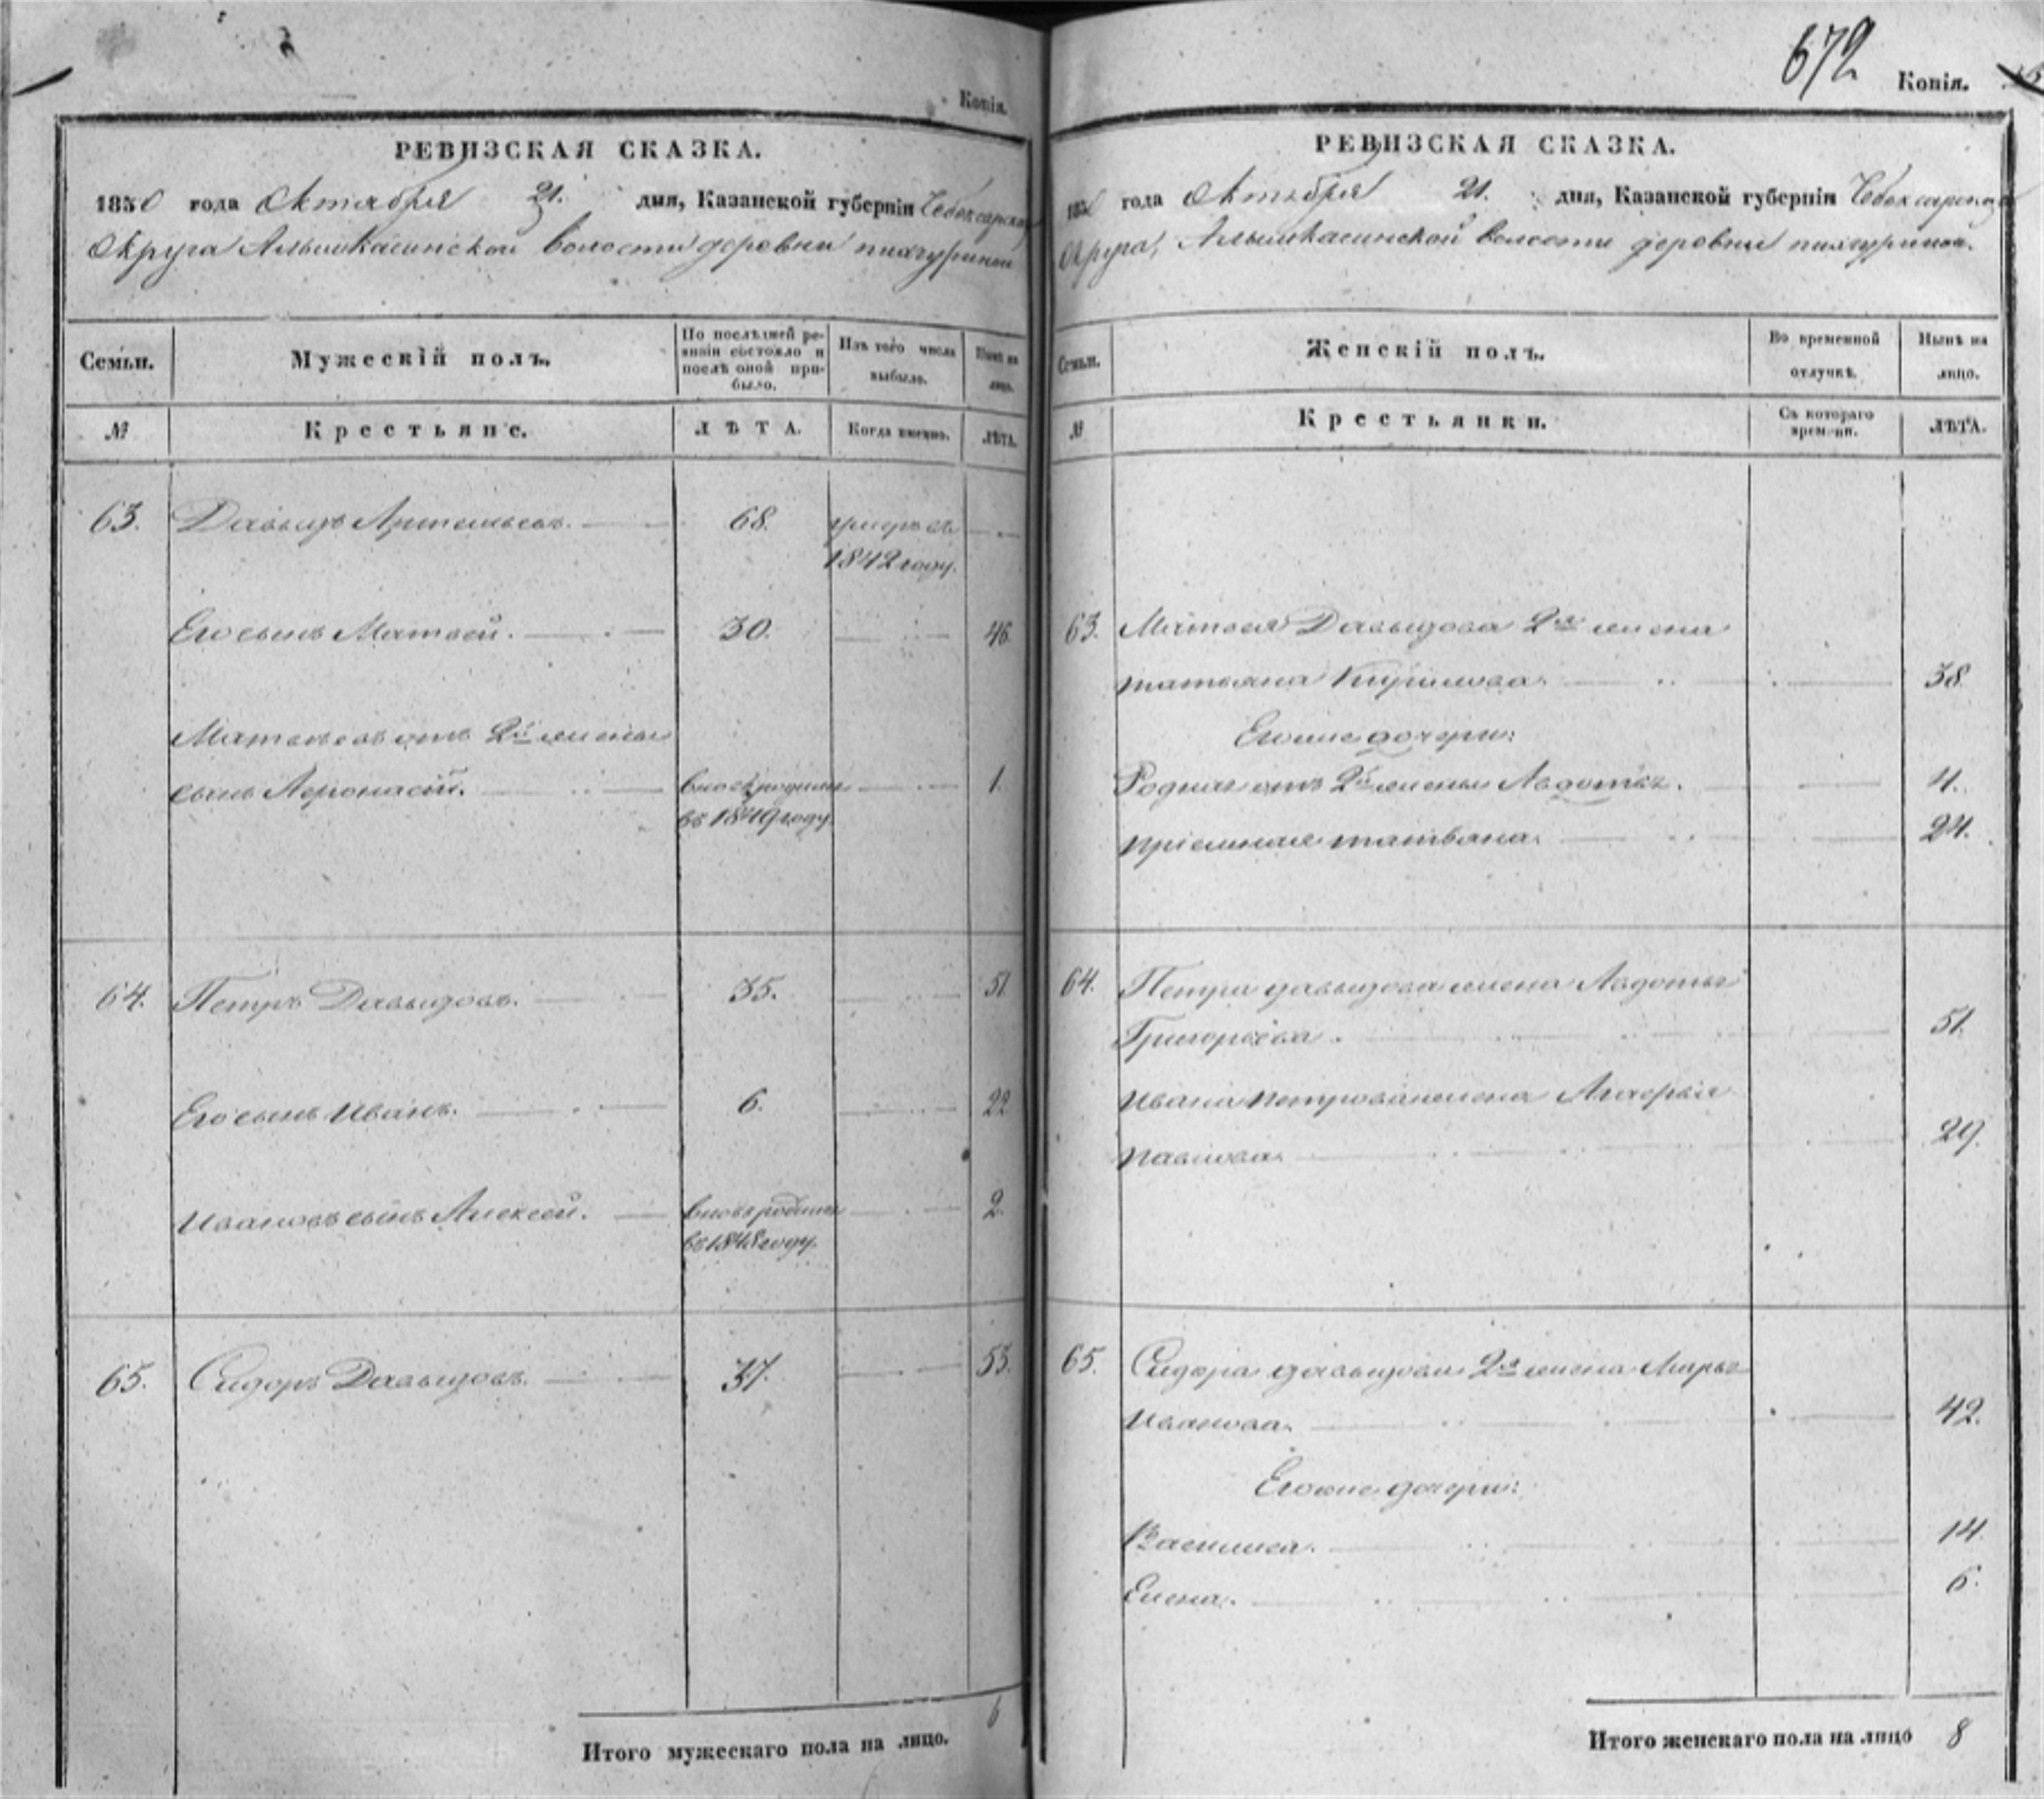 Копія.
РЕВИЗСКАЯ СКАЗКА.
1850 года Октября 21. дня, Казанской губерніи Чебоксарскаго
Округа Алымкасинской волости деревни пихтулиной
Семьи.
Мужескій полъ.
По послѣдней ре-
визіи состояло и
послѣ оной при-
было.
Изъ того числа
выбыло.
Нынѣ на
лицо.
№
Крестьяне.
ЛѢТА.
Когда именно.
ЛѢТА.
63. Давыдъ Артемьевъ. 68. умеръ въ
1842 году.
Его сынъ Матвей. 30. 46.
Матвѣевъ отъ 2й жены
сынъ Афонасій. вновь родился 1.
въ 1849 году.
64. Петръ Давыдовъ. 35. 51.
Его сынъ Иванъ. 6. 22.
Ивановъ сынъ Алексей. вновь родился 2.
въ 1848 году.
65. Сидоръ Давыдовъ. 37. 53.
6
Итого мужескаго пола на лицо.
672 Копія.
РЕВИЗСКАЯ СКАЗКА.
1850 года Октября 21. дня, Казанской губерніи Чебоксарскаго
Округа, Алымкасинской волости деревни
Семьи.
Женскій полъ.
Во временной
отлучкѣ.
Нынѣ на
лицо.
№
Крестьянки.
Съ котораго
времени.
ЛѢТА.
63. Матвея Давыдова 2я жена
татьяна Кирилова. 38.
Его же дочери:
Родная отъ 2й жены Авдотья. 4.
пріемная татьяна. 24.
64. Петра давыдова жена Авдотья
Григорьева. 51.
Ивана петрова жена
павлова. 29.
65. Сидора давыдова 2я жена Марья
Иванова. 42.
Его же дочери:
Василиса. 14.
Елена. 6.
Итого женскаго пола на лицо 8